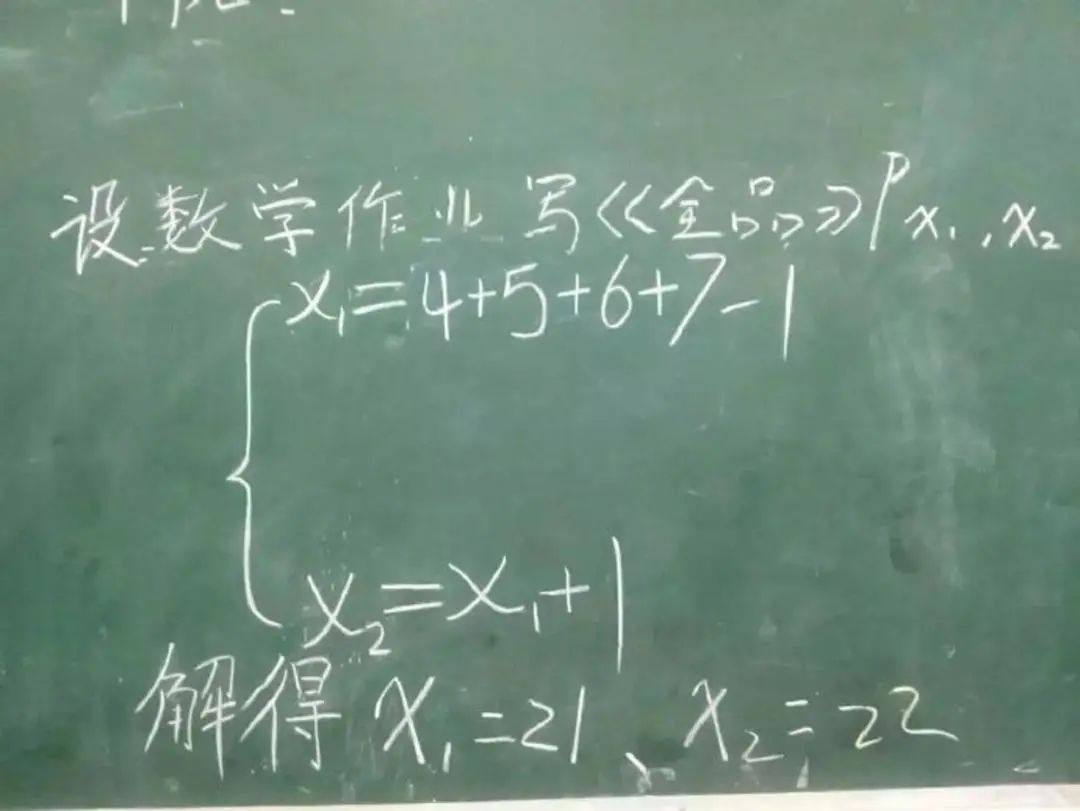 设数学作业写《全品》P x₁,x₂
x₁=4+5+6+7-1
x₂=x₁+1
解得 x₁=21、x₂=22